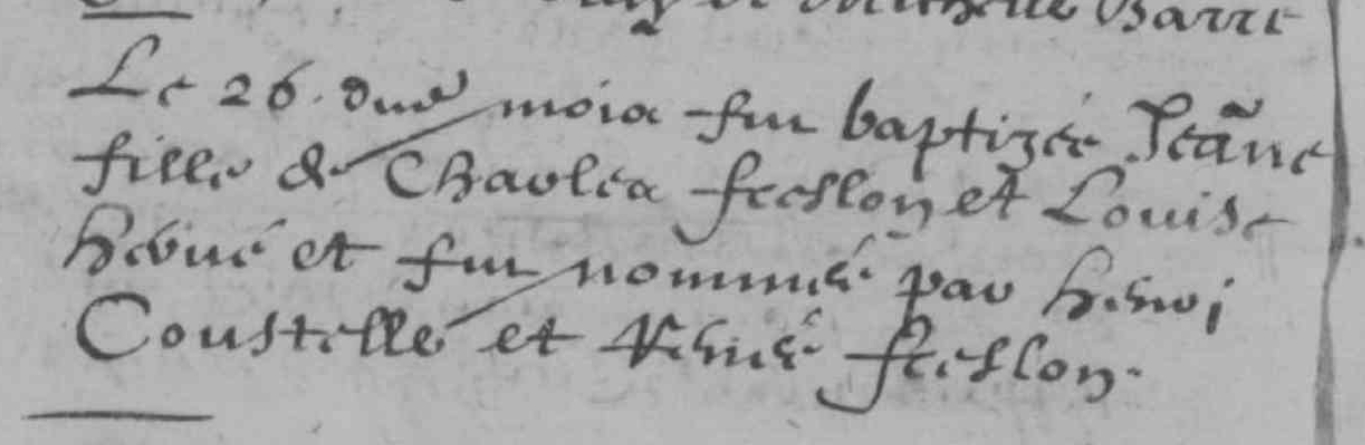 de Michelle Barre
Le 26. dud moia fut baptizée Jeãne
fille de Charles Freslon et Louise
Hervé et fut nommée par Henri
Coustelle et Renée Freslon.